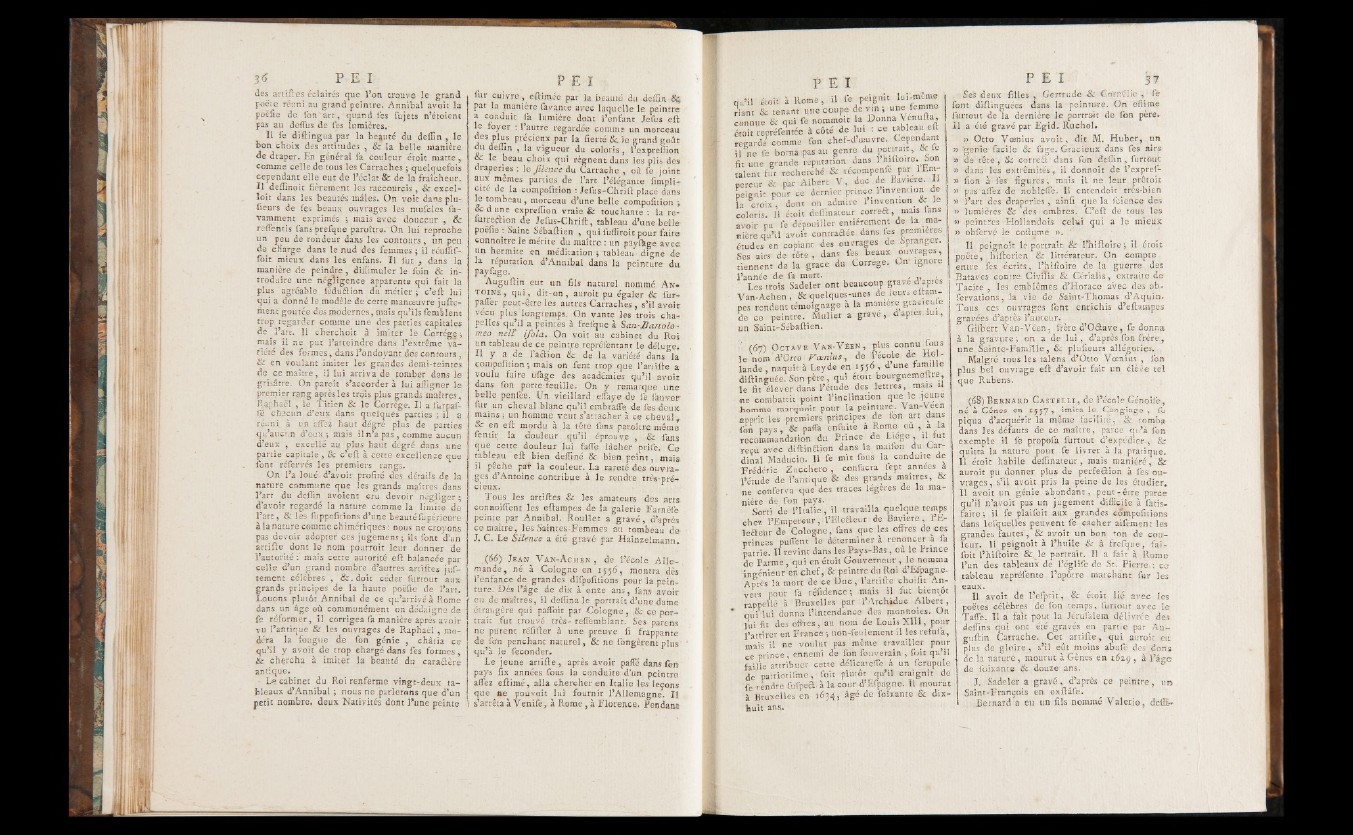 36 P E I
des artiſtes éclairés que l'on trouve le grand
poëte réuni au grand peintre. Annibal avoit la
poëſie de ſon art, quand ſes ſujets n'étoient
pas au deſſus de ſes lumières.
Il ſe diſtingua par la beauté du deſſin, le
bon choix des attitudes, & la belle manière
de draper. En général ſa couleur étoit matte,
comme celle de tous les Carraches ; quelquefois
cependant elle eut de l'éclat & de la fraîcheur.
Il deſſinoit fièrement les raccourcis, & excel-
loit dans les beautés mâles. On voit dans plu-
ſieurs de ſes beaux ouvrages les muſcles ſa-
vamment exprimés ; mais avec douceur, &
reſſentis ſans preſque paroître. On lui reproche
un peu de rondeur dans les contours, un peu
de charge dans le nud des femmes ; il réuſſiſ-
ſoit mieux dans les enfans. Il fut, dans la
manière de peindre, diſſimuler le ſoin & in-
troduire une négligence apparente qui fait la
plus agréable ſéduction du métier, c'eſt lui
qui a donné le modèle de cette manœuvre juſte-
ment goutée des modernes, mais qu'ils ſemblent
trop regarder comme une des parties capitales
de l'art. Il cherchoit à imiter le Corrège,
mais il ne put l'atteindre dans l'extrême va-
riété des formes, dans l'ondoyant des contours,
& en voulant imiter les grandes demi-teintes
de ce maître, il lui arriva de tomber dans le
griſâtre. On paroît s'accorder à lui aſſigner le
premier rang après les trois plus grands maîtres,
Raphaël, le Titien & le Corrège. Il a ſurpaſ-
ſé chacun d'eux dans quelques parties ; il a
réuni à un aſſez haut dégré plus de parties
qu'aucun d'eux ; mais il n'a pas, comme aucun
d'eux, excellé au plus haut dégré dans une
partie capitale, & c'eſt à cette excellence que
ſont réſervés les premiers rangs.
On l'a loué d'avoir profité des détails de la
nature commune que les grands maîtres dans
l'art du deſſin avoient cru devoir négliger ;
d'avoir regardé la nature comme la limite de
l'art, & les ſuppoſitions d'une beauté ſupérieure
à la nature comme chimériques : nous ne croyons
pas devoir adopter ces jugemens ; ils ſont d'un
artiſte dont le nom pourroit leur donner de
l'autorité : mais cette autorité eſt balancée par
celle d'un grand nombre d'autres artiſtes juſ-
tement célèbres, & doit céder ſurtout aux
grands principes de la haute poëſie de l'art.
Louons plutôt Annibal de ce qu'arrivé à Rome
dans un âge où communément on dédaigne de
ſe réformer, il corrigea ſa manière après avoir
vu l'antique & les ouvrages de Raphaël, mo-
déra la fougue de ſon génie, châtia ce
qu'il y avoit de trop chargé dans ſes formes,
& chercha à imiter la beauté du caractère
antique.
Le cabinet du Roi renferme vingt-deux ta-
bleaux d'Annibal ; nous ne parlerons que d'un
petit nombre. deux Nativités dont l'une peinte
P E I
ſur cuivre, eſtimée par la beauté du deſſin &
par la manière ſavante avec laquelle le peintre
a conduit ſa lumière dont l'enfant Jeſus eſt
le foyer : l'autre regardée comme un morceau
des plus précieux par la fierté & le grand goût
du deſſin, la vigueur du coloris, l'expreſſion
& le beau choix qui règnent dans les plis des
draperies : le ſilence du Carrache, où ſe joint
aux mêmes parties de l'art l'élégante ſimpli-
cité de la compoſition : Jeſus-Chriſt place dans
le tombeau, morceau d'une belle compoſition ;
& d'une expreſſion vraie & touchante : la re-
ſurrection de Jeſus-Chriſt, tableau d'une belle
poëſie : Saint Sébaſtien, qui ſuffiroit pour faire
connoître le mérite du maître : un payſage avec
un hermite en méditation ; tableau digne de
la réputation d'Annibal dans la peinture du
payſage.
Auguſtin eut un fils naturel nommé AN-
TOINE, qui, dit-on, auroit pu égaler & ſur-
paſſer peut-être les autres Carraches, s'il avoit
vécu plus longtemps. On vante les trois cha-
pelles qu'il a peintes à freſque à San-Bartolo-
meo nell' iſola. On voit au cabinet du Roi
un tableau de ce peintre repréſentant le déluge.
Il y a de l'action & de la variété dans la
compoſition ; mais on ſent trop que l'artiſte a
voulu faire uſage des académies qu'il avoit
dans ſon porte-feuille. On y remarque une
belle penſée. Un vieillard eſſaye de ſe ſauver
ſur un cheval blanc qu'il embraſſe de ſes deux
mains : un homme veut s'attacher à ce cheval,
& en eſt mordu à la tête ſans paroître même
ſentir la douleur qu'il éprouve, & ſans
que cette douleur lui faſſe lâcher priſe. Ce
tableau eſt bien deſſiné & bien peint, mais
il pêche par la couleur. La rareté des ouvra-
ges d'Antoine contribue à le rendre très-pré-
cieux.
Tous les artiſtes & les amateurs des arts
connoiſſent les eſtampes de la galerie Farnèſe
peinte par Annibal. Roullet a gravé, d'après
ce maître, les Saintes-Femmes au tombeau de
J. C. Le Silence a été gravé par Hainzelmann.
(66) JEAN VAN-ACHEN, de l'école Alle-
mande, né à Cologne en 1556, montra dès
l'enfance de grandes diſpoſitions pour la pein-
ture. Dès l'âge de dix à onze ans, ſans avoir
eu de maîtres, il deſſina le portrait d'une dame
étrangère qui paſſoit par Cologne, & ce por-
trait fut trouvé très-reſſemblant. Ses parens
ne purent réſiſter à une preuve ſi frappante
de ſon penchant naturel, & ne ſongèrent plus
qu'à le ſeconder.
Le jeune artiſte, après avoir paſſé dans ſon
pays ſix années ſous la conduite d'un peintre
aſſez eſtimé, alla chercher en Italie les leçons
que ne pouvoit lui fournir l'Allemagne. Il
s'arrêta à Veniſe, à Rome, à Florence. Pendant
P E I
qu'il étoit à Rome, il ſe peignit lui-même
riant & tenant une coupe de vin ; une femme
connue & qui ſe nommoit la Donna Vénuſta,
étoit repréſentée à côté de lui : ce tableau eſt
regardé comme ſon chef-d'œuvre. Cependant
il ne ſe borna pas au genre du portrait, & ſe
fit une grande réputation dans l'hiſtoire. Son
talent fut recherché & récompenſé par l'Em-
pereur & par Albert V, duc de Bavière. Il
peignit pour ce dernier prince l'invention de
la croix, dont on admire l'invention & le
coloris. Il étoit deſſinateur correct, mais ſans
avoir pu ſe dépouiller entièrement de la ma-
nière qu'il avoit contractée dans ſes premières
études en copiant des ouvrages de Spranger.
Ses airs de tête, dans ſes beaux ouvrages,
tiennent de la grace du Corrège. On ignore
l'année de ſa mort.
Les trois Sadeler ont beaucoup gravé d'après
Van-Achen, & quelques-unes de leurs eſtam-
pes rendent témoignage à la manière gracieuſe
de ce peintre. Muller a gravé, d'après lui,
un Saint-Sébaſtien.
(67) OCTAVE VAN-VÉEN, plus connu ſous
le nom d'Otto Vœnius, de l'école de Hol-
lande, naquit à Leyde en 1556, d'une famille
diſtinguée. Son père, qui étoit bourguemeſtre,
le fit élever dans l'étude des lettres, mais il
ne combattit point l'inclination que le jeune
homme marquoit pour la peinture. Van-Véen
apprit les premiers principes de ſon art dans
ſon pays, & paſſa enſuite à Rome où, à la
recommandation du Prince de Liège, il fut
reçu avec diſtinction dans la maiſon du Car-
dinal Maducio. Il ſe mit ſous la conduite de
Frédéric Zucchero, conſacra ſept années à
l'étude de l'antique & des grands maîtres, &
ne conſerva que des traces légères de la ma-
nière de ſon pays.
Sorti de l'Italie, il travailla quelque temps
chez l'Empereur, l'Electeur de Bavière, l'E-
lecteur de Cologne, ſans que les offres de ces
princes puſſent le déterminer à renoncer à ſa
patrie. Il revint dans les Pays-Bas, où le Prince
de Parme, qui en étoit Gouverneur, le nomma
ingénieur en chef, & peintre du Roi d'Eſpagne.
Après la mort de ce Duc, l'artiſte choiſit An-
vers pour ſa réſidence ; mais il fut bientôt
rappellé à Bruxelles par l'Archiduc Albert,
qui lui donna l'intendance des monnoies. On
lui fit des offres, au nom de Louis XIII, pour
l'attirer en France ; non-ſeulement il les refuſa,
mais il ne voulut pas même travailler pour
ce prince, ennemi de ſon ſouverain, ſoit qu'il
faille attribuer cette délicateſſe à un ſcrupule
de patriotiſme, ſoit plutôt qu'il craignît de
ſe rendre ſuſpect à la cour d'Eſpagne. Il mourut
à Bruxelles en 1634, âgé de ſoixante & dix-
huit ans.
P E I 37
Ses deux filles, Gertrude & Cornélie, ſe
ſont diſtinguées dans la peinture. On eſtime
ſurtout de la dernière le portrait de ſon père.
Il a été gravé par Egid. Ruchol.
» Otto Vœnius avoit, dit M. Huber, un
» génie facile & ſage. Gracieux dans ſes airs
» de tête, & correct dans ſon deſſin, ſurtout
» dans les extrêmités, il donnoit de l'expreſ-
» ſion à ſes figures, mais il ne leur prêtoit
» pas aſſez de nobleſſe. Il entendoit très-bien
» l'art des draperies, ainſi que la ſcience des
» lumières & des ombres. C'eſt de tous les
» peintres Hollandois celui qui a le mieux
» obſervé le coſtume ».
Il peignoit le portrait & l'hiſtoire ; il étoit
poëte, hiſtorien & littérateur. On compte
entre ſes écrits, l'hiſtoire de la guerre des
Bataves contre Civilis & Cérialis, extraite de
Tacite, les emblêmes d'Horace avec des ob-
ſervations, la vie de Saint-Thomas d'Aquin.
Tous ces ouvrages ſont enrichis d'eſtampes
gravées d'après l'auteur.
Gilbert Van-Véen, frère d'Octave, ſe donna
à la gravure ; on a de lui, d'après ſon frère,
une Sainte-Famille, & pluſieurs allégories.
Malgré tous les talens d'Otto Vœnius, ſon
plus bel ouvrage eſt d'avoir fait un élève tel
que Rubens.
(68) BERNARD CASTELLI, de l'école Génoiſe,
né à Gênes en 1557, imita le Cangiage, ſe
piqua d'acquérir la même facilité, & tomba
dans les défauts de ce maître, parce qu'à ſon
exemple il ſe propoſa ſurtout d'expédier, &
quitta la nature pour ſe livrer à la pratique.
Il étoit habile deſſinateur, mais maniéré, &
auroit pu donner plus de perfection à ſes ou-
vrages, s'il avoit pris la peine de les étudier.
Il avoit un génie abondant, peut-être parce
qu'il n'avoit pas un jugement difficile à ſatis-
faire ; il ſe plaiſoit aux grandes compoſitions
dans leſquelles peuvent ſe cacher aiſément les
grandes fautes, & avoit un bon ton de cou-
leur. Il peignoit à l'huile & à freſque, fai-
ſoit l'hiſtoire & le portrait. Il a fait à Rome
l'un des tableaux de l'égliſe de St. Pierre : ce
tableau repréſente l'apôtre marchant ſur les
eaux.
Il avoit de l'eſprit, & étoit lié avec les
poëtes célèbres de ſon temps, ſurtout avec le
Taſſe. Il a fait pour la Jéruſalem délivrée des
deſſins qui ont été gravés en partie par Au-
guſtin Carrache. Cet artiſte, qui auroit eu
plus de gloire, s'il eût moins abuſé des dons
de la nature, mourut à Gênes en 1629, à l'âge
de ſoixante & douze ans.
J. Sadeler a gravé, d'après ce peintre, un
Saint-François en extâſe.
Bernard a eu un fils nommé Valerio, deſſi-